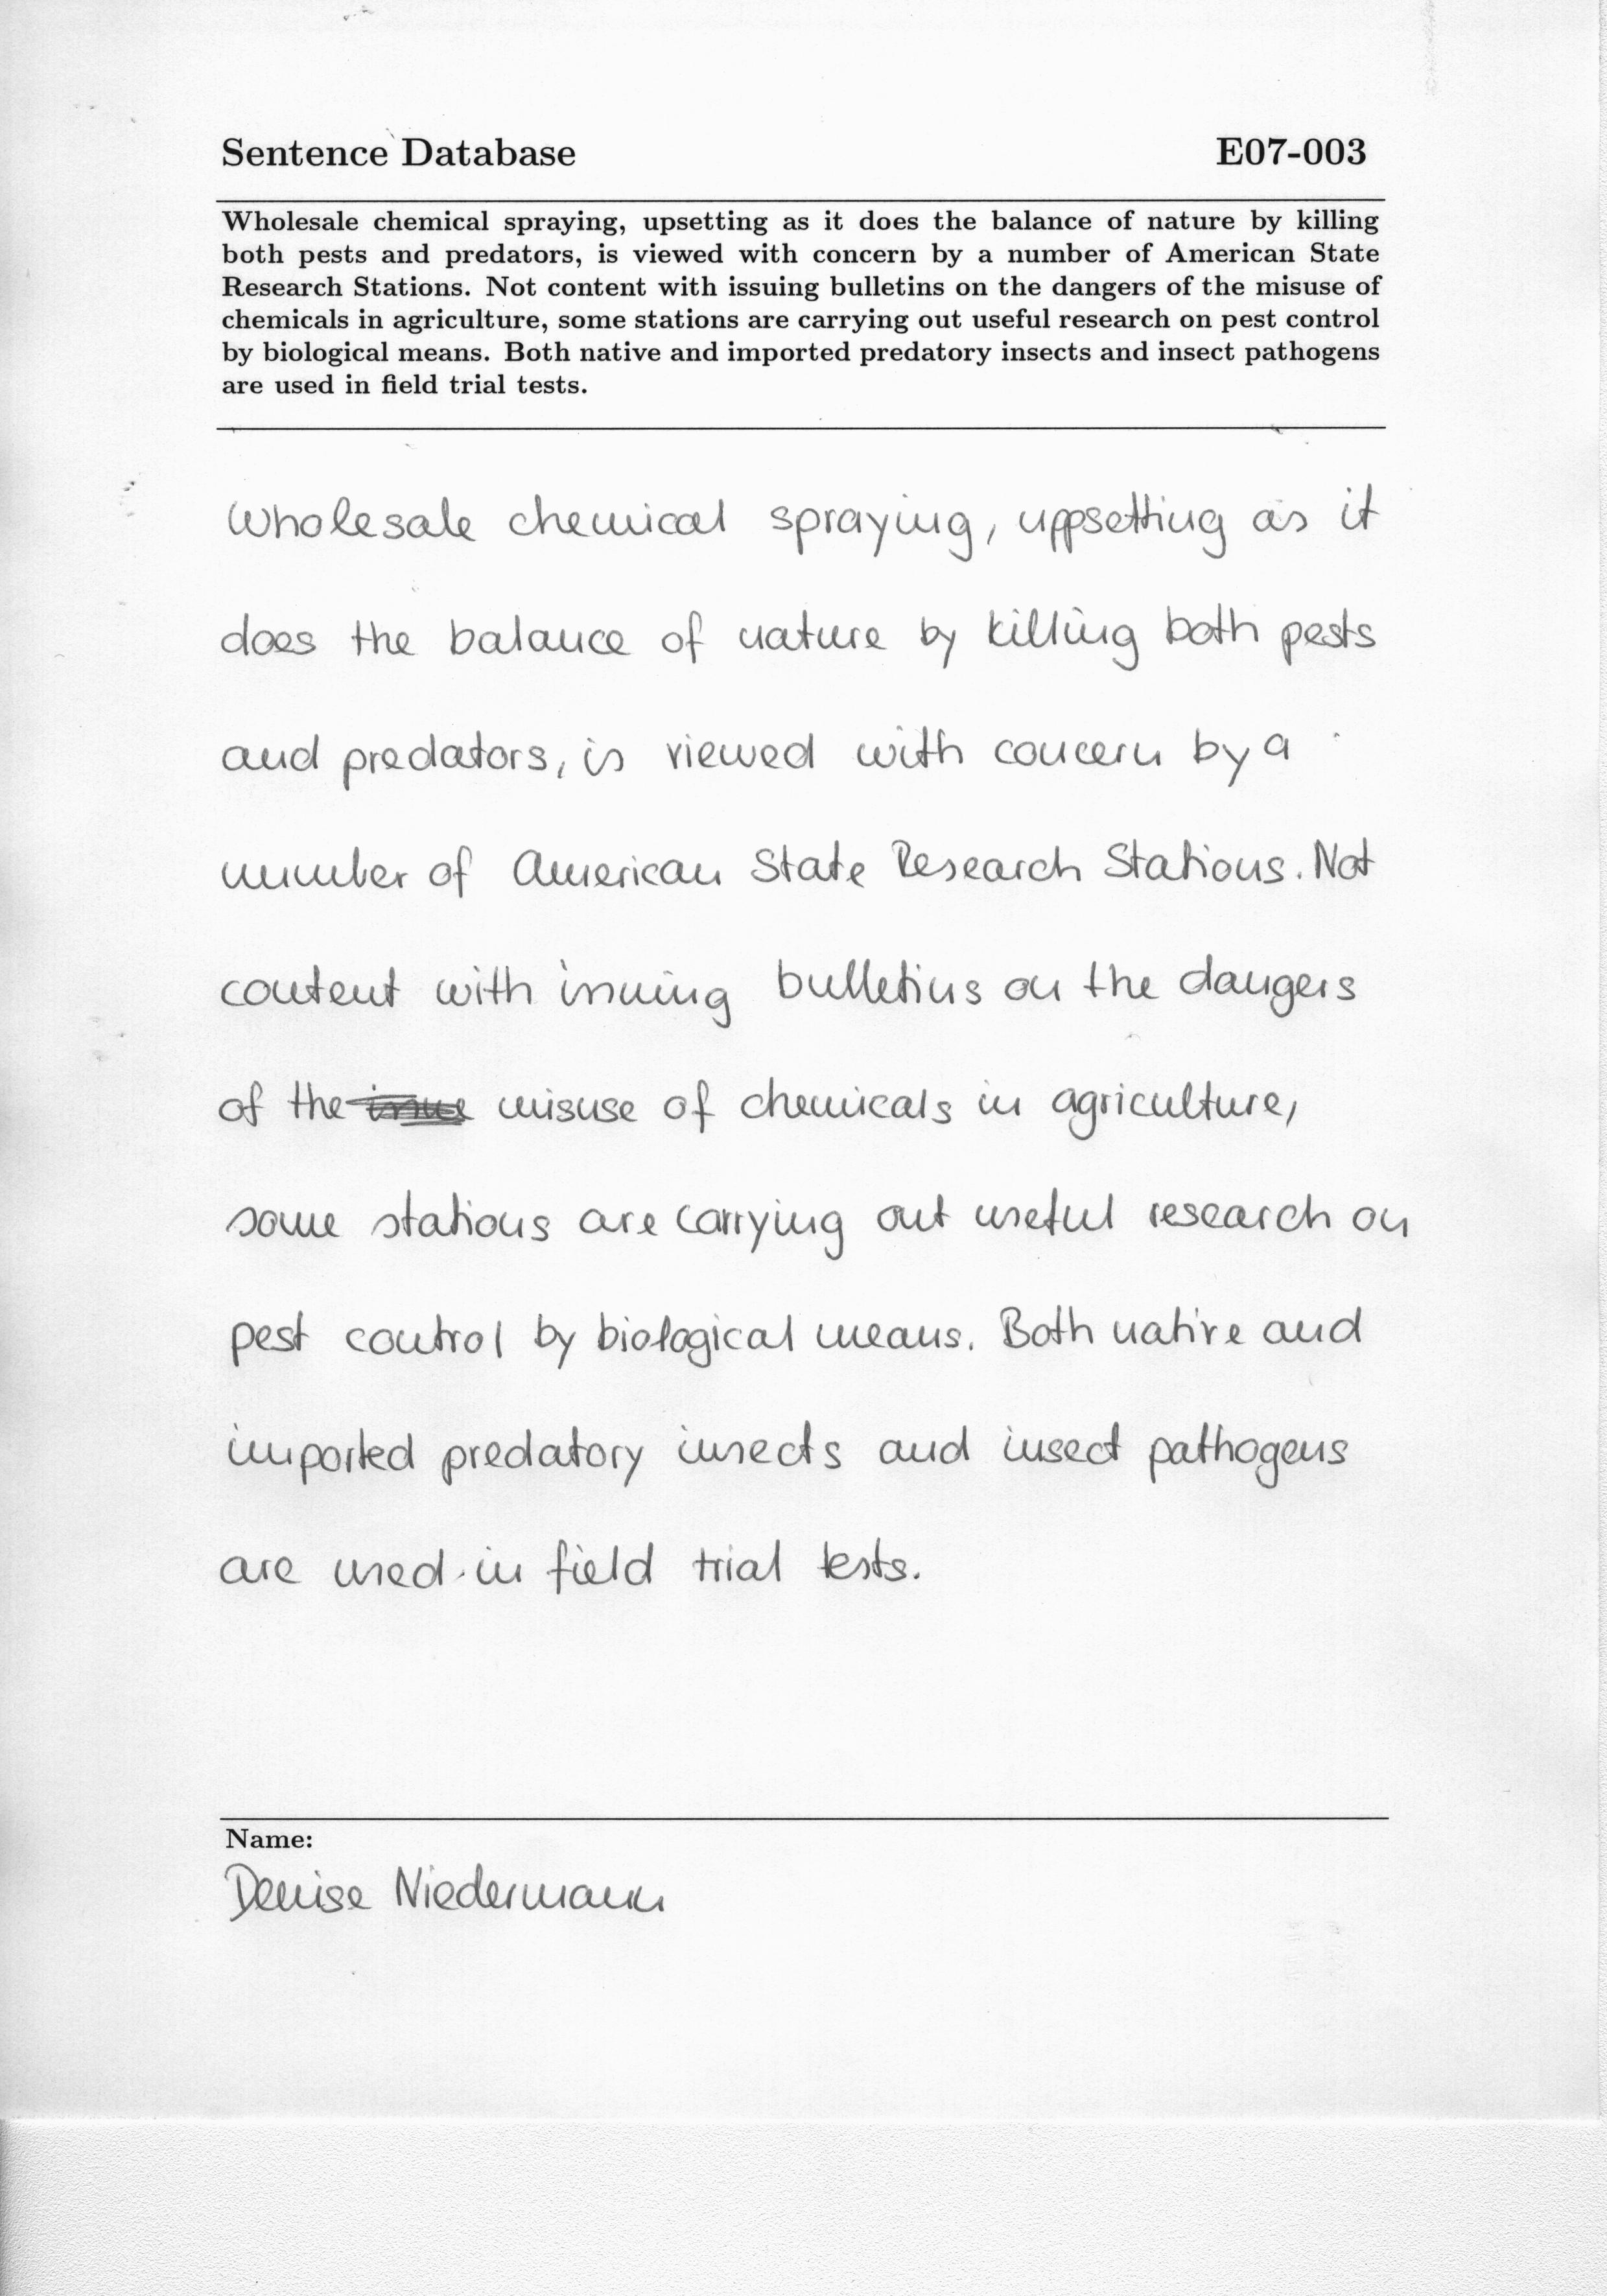 Sentence Database E07-003
Wholesale chemical spraying, upsetting as it does the balance of nature by killing
both pests and predators, is viewed with concern by a number of American State
Research Stations. Not content with issuing bulletins on the dangers of the misuse of
chemicals in agriculture, some stations are carrying out useful research on pest control
by biological means. Both native and imported predatory insects and insect pathogens
are used in field trial tests.
Wholesale chemical spraying, uppsetting as it
does the balance of nature by killing both pests
and predators, is viewed with concern by a
number of American State Research Stations. Not
content with issuing bulletins on the dangers
of the misuse of chemicals in agriculture,
some stations are carrying out useful research on
pest control by biological means. Both native and
imported predatory insects and insect pathogens
are used in field trial tests.
Name:
Denise Niedermann